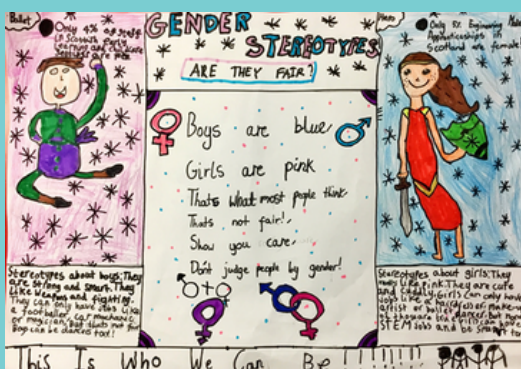 Ballet
Only 4% of staff
in Scottish Early
Learning and Childcare
Settings are men
GENDER
STEREOTYPES
ARE THEY FAIR?
Only 5% Engineering
Apprenticeships in
Scotland are female!
Boys are blue
Girls are pink
Thats what most people think
Thats not fair!
Show you care
Don't judge people by gender!
Stereotypes about boys: They
are strong and smart. They
like weapons and fighting.
They can only have jobs like
a footballer, car mechanic
or magician, but thats not true
Boys can be dancers too!
Stereotypes about girls: They
like pink. They are cute
and cuddly. Girls can only have
jobs like a
artist or ballet dancer. But
of those are true Girls can have
STEM Jobs and be smart too
This Is Who We Can Be!!!!!!!!